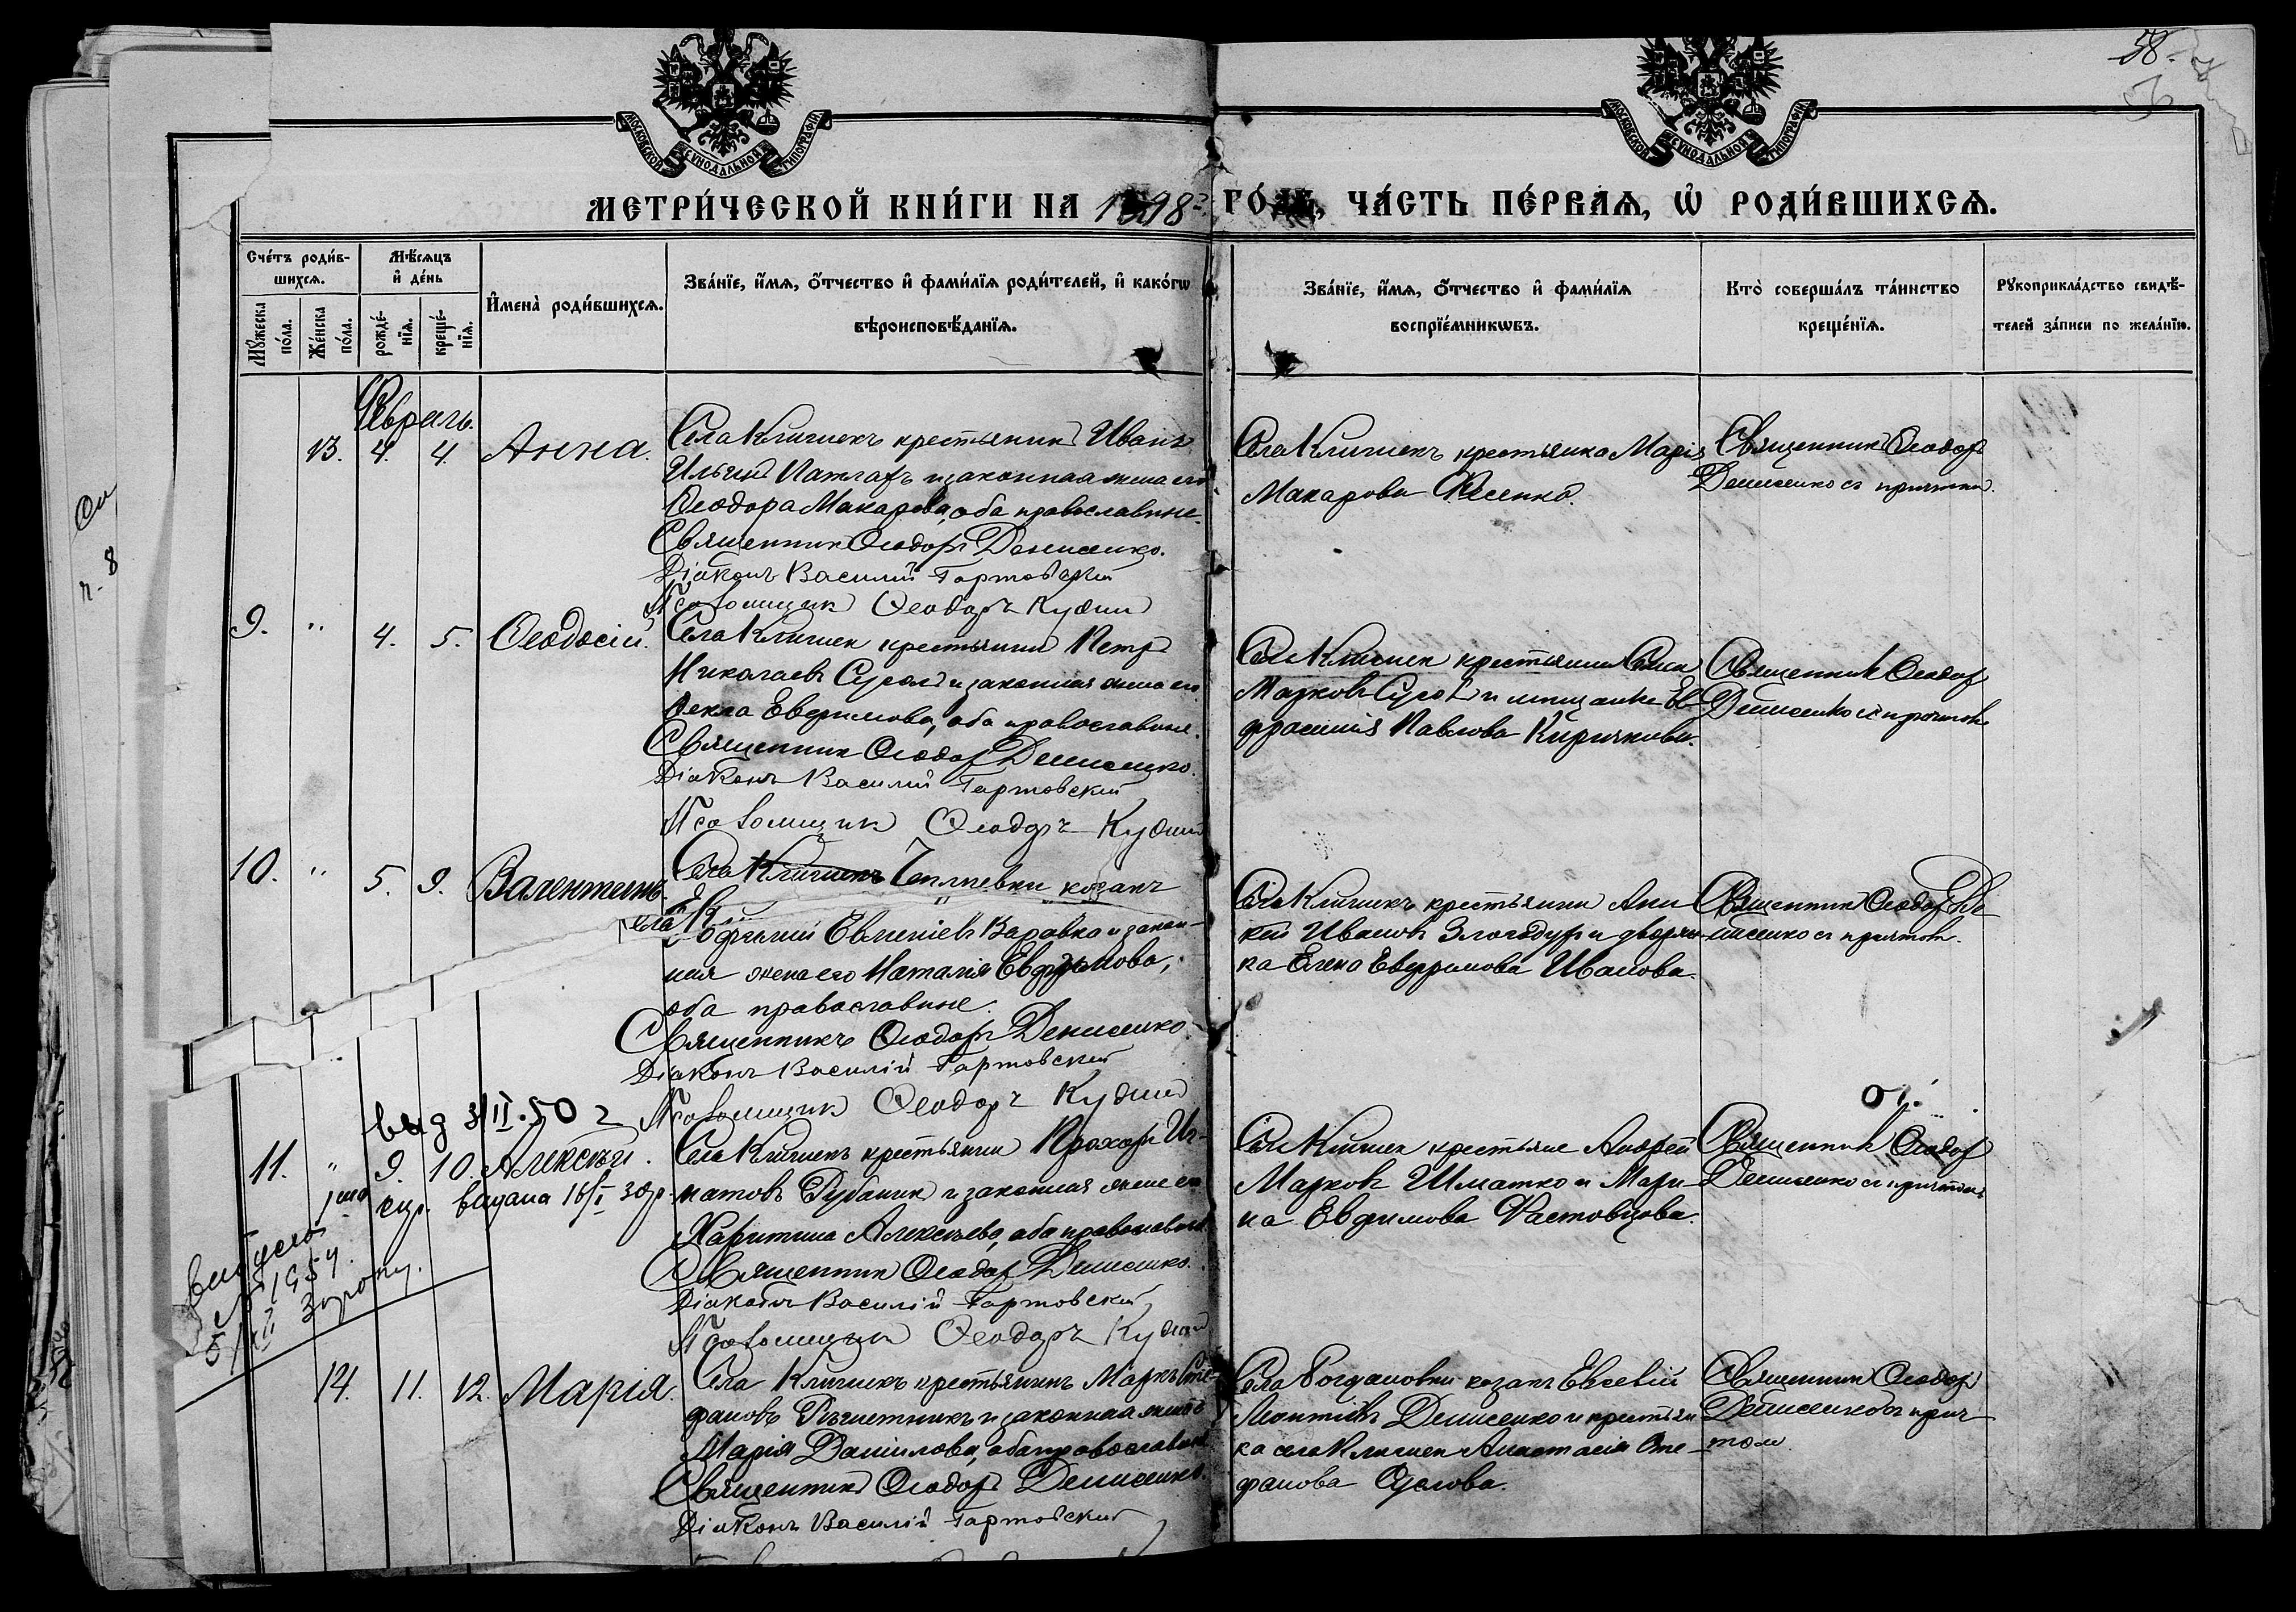 58.
МОСКОВСКОЙ СѴНОДАЛЬНОЙ ТИПОГРАФІИ
МОСКОВСКОЙ СѴНОДАЛЬНОЙ ТИПОГРАФІИ
МЕТРИ́ЧЕСКОЙ КНИ́ГИ НА 1898 ГО́ДЪ, ЧА́СТЬ ПЕ́РВАѦ, Ѡ҆ РОДИ́ВШИХСѦ.
Сче́тъ роди́в-
шихсѧ.
Мꙋ́жеска по́ла.
Же́нска по́ла.
Мѣ́сѧцъ
и҆ де́нь
рожде́-
нїѧ.
креще́-
нїѧ.
И҆мена̀ роди́вшихсѧ.
Зва́нїе, и҆́мѧ, ѻ҆́тчество и҆ фами́лїѧ роди́телей, и҆ како́гѡ
вѣроисповѣ́данїѧ.
Зва́нїе, и҆́мѧ, ѻ҆́тчество и҆ фами́лїѧ
воспрїе́мникѡвъ.
Кто̀ соверша́лъ та́инство
креще́нїѧ.
Рꙋкоприкла́дство свидѣ́-
телей за́писи по жела́нїю.
Февраль.
13. 4. 4. Анна.
Села Клишекъ крестьянинъ Иванъ
Ильинъ и законная жена его
Ѳеодора Макарова, оба православные.
Священникъ Ѳеодоръ Денисенко.
Діаконъ Василій Гартовскій
Псаломщикъ Ѳеодоръ Кудин
Села Клишекъ крестьянка Марія
Макарова
Священникъ Ѳеодоръ
Денисенко съ причтомъ.
9. " 4. 5. Ѳеодосій.
Села Клишекъ крестьянинъ Петръ
Николаевъ Суслов и законная жена его
Ѳекла Евфимова, оба православные.
Священникъ Ѳеодоръ Денисенко.
Діаконъ Василій Гартовскій
Псаломщикъ Ѳеодоръ Кудин
Села Клишекъ крестьянинъ
Марковъ и мещанка Ев-
фросинія Павлова
Священникъ Ѳеодоръ
Денисенко съ причтомъ
10. " 5. 9. Валентинъ.
Села Клишекъ козакъ
Евменіевъ Варавка и закон-
ная жена его Наталія Евфимова,
оба православные.
Священникъ Ѳеодоръ Денисенко
Діаконъ Василій Гартовскій
Псаломщикъ Ѳеодоръ Кудин
Села Клишекъ крестьянинъ Ани-
кій Ивановъ Злогодухъ и дворян-
ка Елена Евфимова Иванова.
Священникъ Ѳеодоръ Де-
нисенко съ причтомъ.
вид 3/II.50 г
11. " 9. 10. Алексѣй.
видана 16/I 30р.
Села Клишекъ крестьянинъ Прохоръ Иг-
натовъ Рубаник и законная жена его
Харитина Алексѣева, оба православные
Священникъ Ѳеодоръ Денисенко.
Діаконъ Василій Гартовскій
Псаломщикъ Ѳеодоръ Кудин
Села Клишекъ крестьяне Андрей
Марковъ Шматко и Мари-
на Евфимова Фастовцова.
Священникъ Ѳеодоръ
Денисенко съ причтомъ
14. 11. 12. Марія.
Села Клишекъ крестьянинъ Маркъ Сте-
фановъ и законная жена его
Марія Даніилова, оба православные
Священникъ Ѳеодоръ Денисенко.
Діаконъ Василій Гартовскій
Села Богдановки козакъ Евсевій
Леонтіевъ Денисенко и крестьян-
ка села Клишекъ Анастасія Сте-
фанова Суслова.
Священникъ Ѳеодоръ
Денисенко съ прич-
томъ.